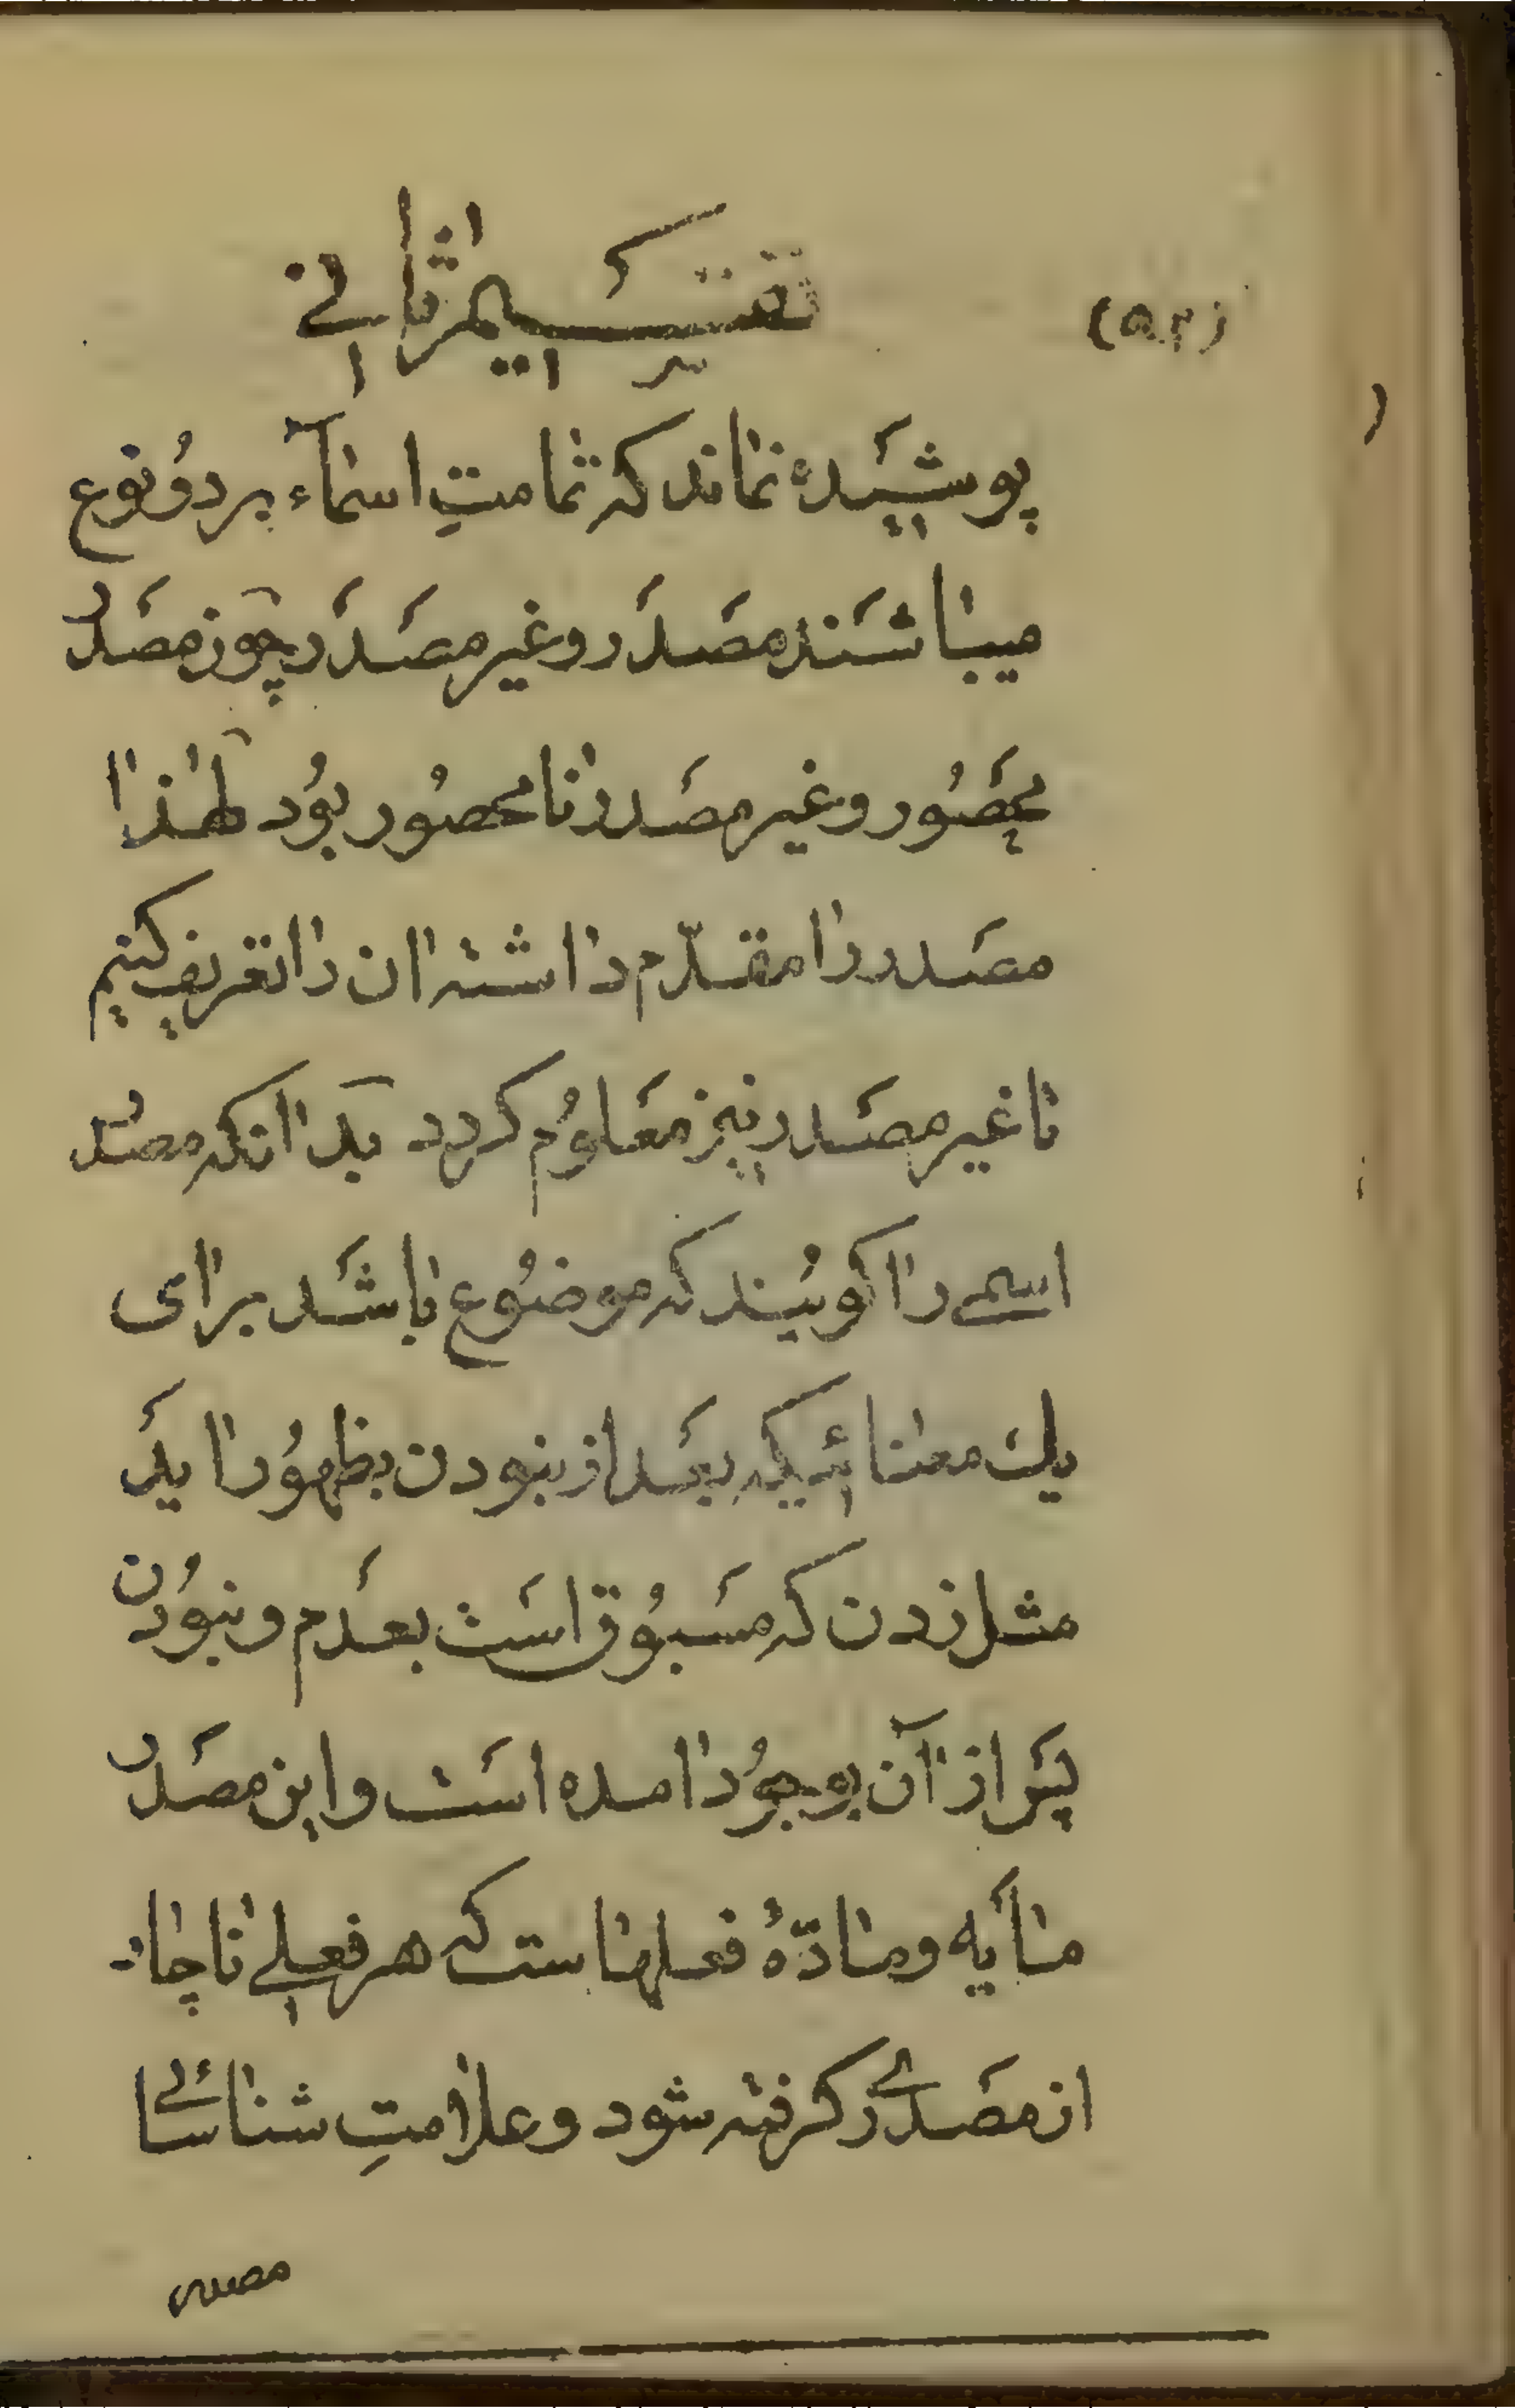 (۵۲)
تقسیم ثانی
پوشیده نماند که تمامتِ اسمآء بر دُو نوع
میباشند مصدَر و غیر مصدَر چون مصدَر
محصُور و غیر مصدر نامحصُور بُود لهٰذا
مصَدر را مقدّم داشته ان را تعریف کنیم
تا غیر مصَدر نیز معلُوم کردد بدانکه مصدر
اسمے را کویند که موضُوع باشَد برای
یك معنائیکه بعَد از نبودن بظهُور اید
مثل زدن که مسبُوق است بعدَم و نبُودن
پَس از آن بوجُود امده است و این مصدَر
مایه و مادّهٔ فعلهاست که هر فعلے ناچار
از مصدَرے کرفته شود و علامتِ شناسائے
مصدر